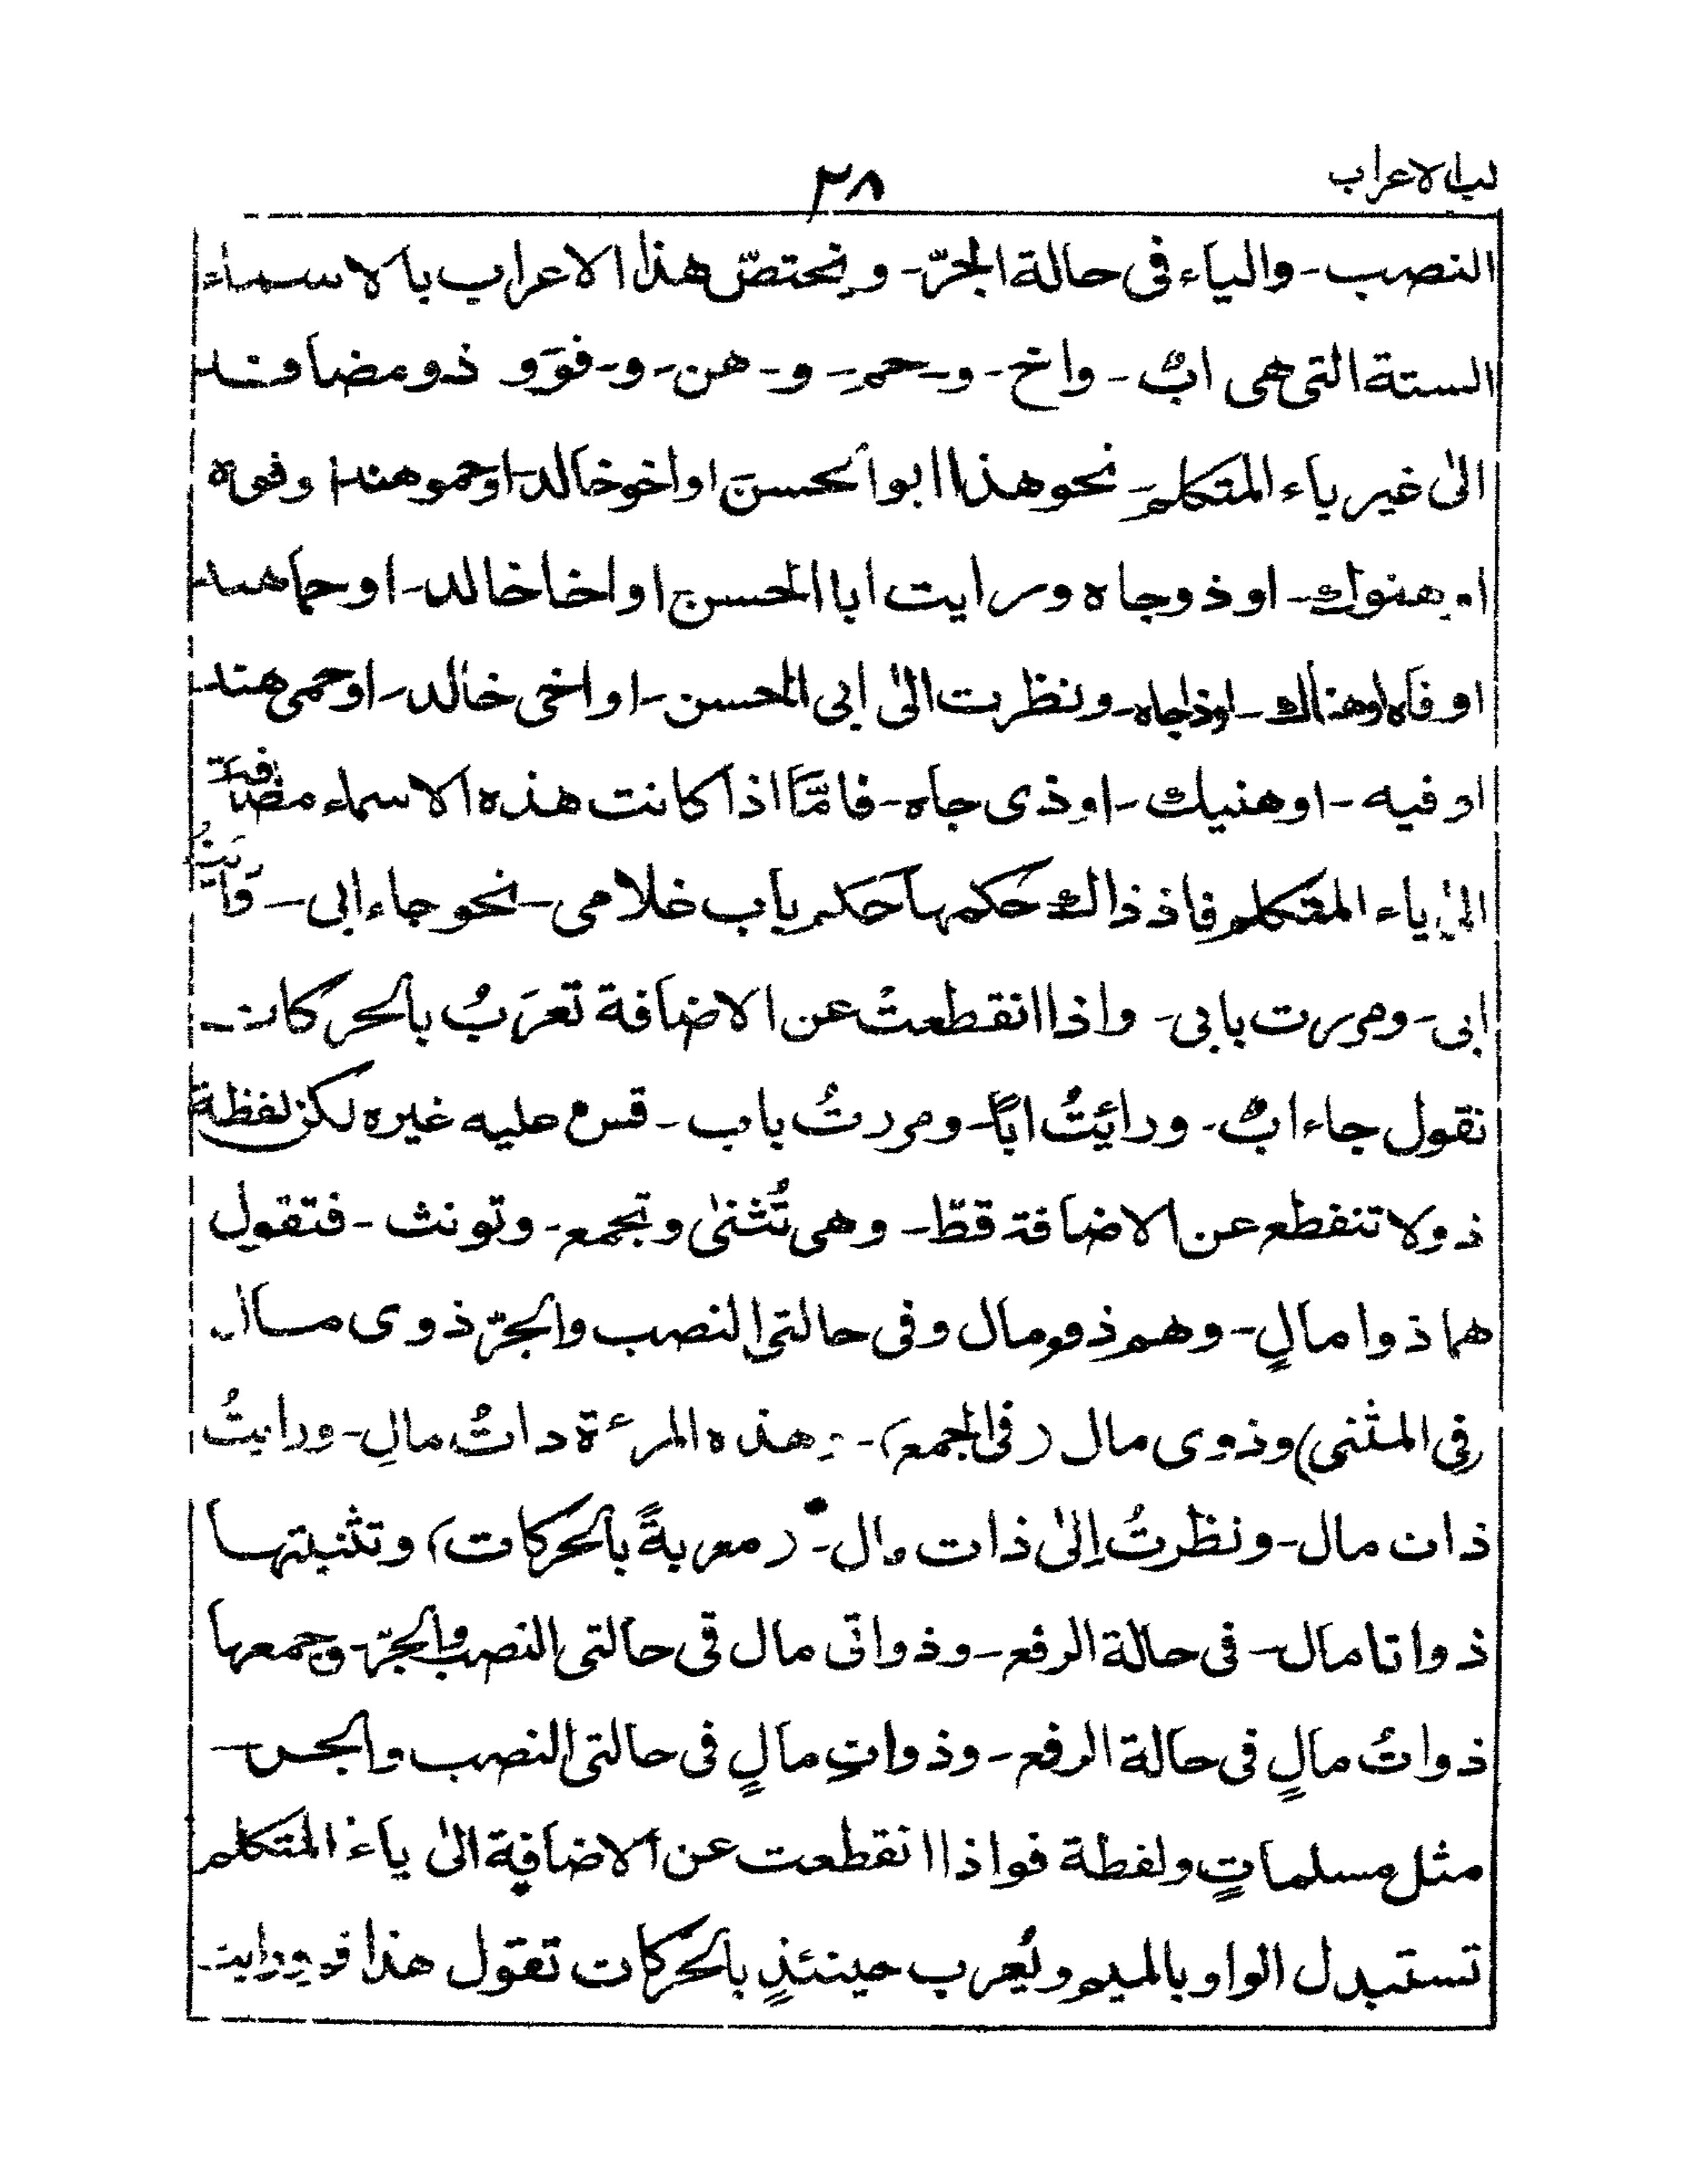 لباب الاعراب
٢٨
النصب - والياء فی حالة الجرّ - ويختصّ هذا الاعراب بالاسماء
الستة التی هی ابٌ - واخ - و - حمر - و - هن - و - فوَ و ذو مضافند
الیٰ غير ياء المتكلم - نحو هذا ابو الحسن او اخو خالد - او حمو هند او فوه
او هنوك - او ذو جاه ورايت ابا الحسن او اخا خالد - او حما هند
او فاه او هناك - او ذا جاه - ونظرت الیٰ ابی الحسن - او اخی خالد - او حمی هند -
او فيه - او هنيك - او ذی جاه - فامّا اذا كانت هذه الاسماء مضافة
الیٰ ياء المتكلم فاذ ذالك حكمها حكم باب غلامی - نحو جاء ابی - ورايتُ
ابی - ومررت بابی - واذا انقطعتْ عن الاضافة تعرَبُ بالحركات -
نقول جاء ابٌ - ورائيتُ اباً - ومررتُ باب - قس عليه غيره لكن لفظة
ذو لا تنفطع عن الاضافة قطّ - وهی تُثنیٰ وتجمع - وتونث - فتقول
هما ذوا مالٍ - وهم ذوو مال وفی حالتی النصب والجرّ ذوی مال
(فی المثنی) وذوی مال (فی الجمع) - وهذه المرءة داتُ مالِ - ورايتُ
ذات مال - ونظرتُ اِلیٰ ذات مال - (معربةً بالحركات) وتثنيتها
ذواتا مال - فی حالة الرفع - وذواتی مال فی حالتی النصب والجرّ - وجمعها
ذواتُ مالٍ فی حالة الرفع - وذواتِ مالٍ فی حالتی النصب والجر -
مثل مسلماتٍ ولفطة فو اذا انقطعت عن الاضافة الیٰ ياء المتكلم
تستبدل الواو بالميم ويُعرب حينئذٍ بالحركات تقول هذا فم ورايت